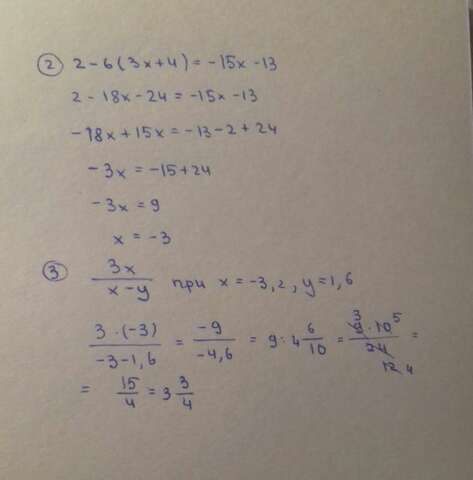 ② 2-6(3x+4) = -15x -13
2 - 18x - 24 = -15x - 13
-18x + 15x = -13 - 2 + 24
-3x = -15 + 24
-3x = 9
x = -3
③ 3x/(x-y) при x = -3,2, y = 1,6
3·(-3)/(-3-1,6) = -9/-4,6 = 9 : 4 6/10 = 3 9·10 5/24 12 4 =
= 15/4 = 3 3/4